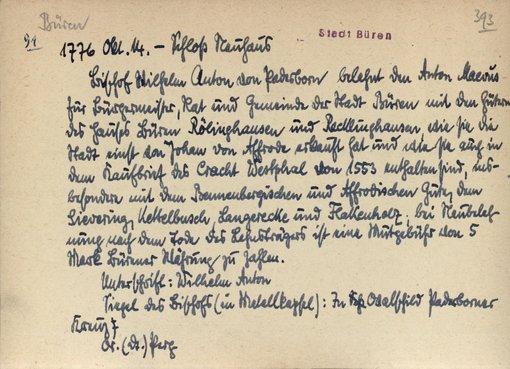 Büren
393
91
Stadt Büren
1776 Okt. 14. - Schloß Neuhaus
Bischof Wilhelm Anton von Paderborn belehnt den Anton
für Bürgermeister, Rat und Gemeinde der Stadt Büren mit den Gütern
des Hauses Büren Rölinghausen und Recklinghausen, wie sie die
Stadt einst von Johan von Affrode erkauft hat und wie sie auch in
dem Kaufbrief des Cracht Westphal von 1553 enthalten sind, ins-
besondere mit dem Brennenbergischen und Affrodischen Gute, dem
Sievering, Kettelbusch, Langerecke und Flakenholz. bei Neubeleh-
nung nach dem Tode des Lehnsträgers ist eine Mutgebühr von 5
Mark Bürener Währung zu zahlen.
Unterschrift: Wilhelm Anton
Siegel des Bischofs (in Metallkapsel): In Ovalschild Paderborner
Kreuz
Or. (dt.) Perg